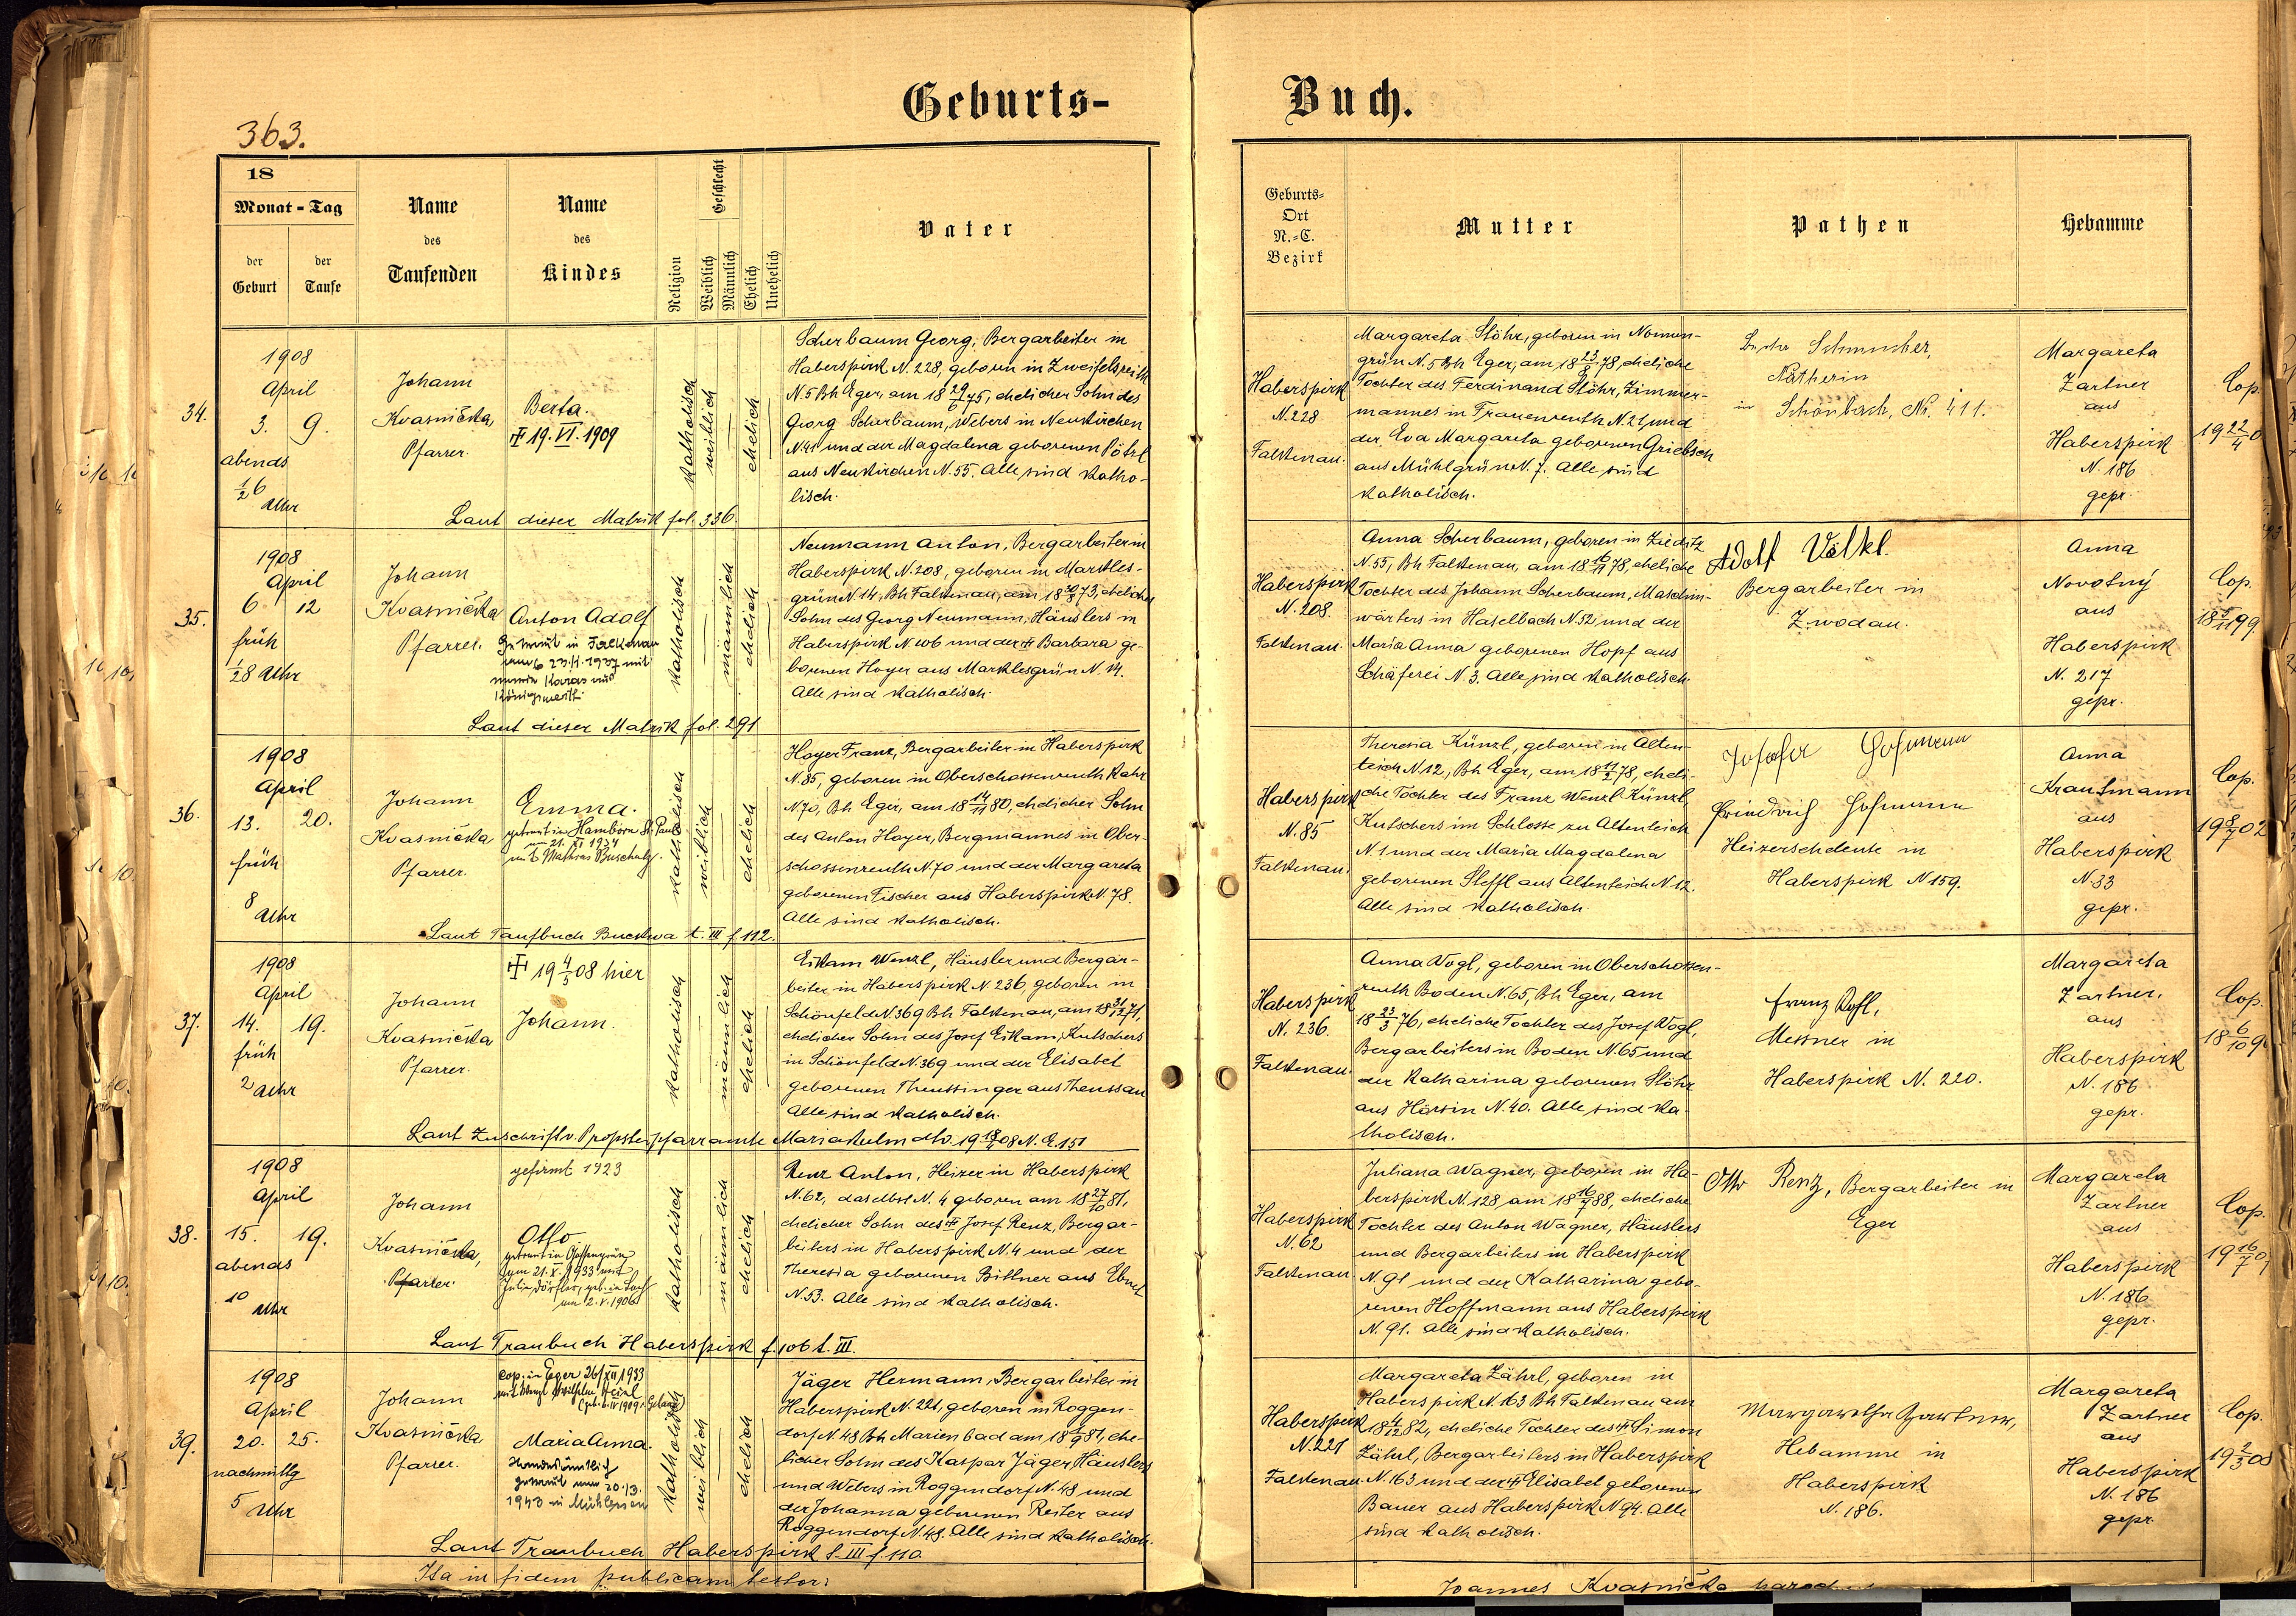 363.
Geburts-
Buch.
18
Monat - Tag
der Geburt
der Taufe
Name des Taufenden
Name des Kindes
Religion
Geschlecht
Weiblich
Männlich
Ehelich
Unehelich
Vater
Geburts-
Ort
N.-C.
Bezirk
Mutter
Pathen
Hebamme
34.
1908
April
3. 9.
abends
1/2 6
Uhr
Johann
Kvasnička,
Pfarrer.
Berta.
19. VI. 1909
katholisch
weiblich
ehelich
Scherbaum Georg, Bergarbeiter in
Haberspirk N. 228, geboren in Zweifelsreith
N. 5 Bh Eger, am 18 29/6 75, ehelicher Sohn des
Georg Scherbaum, Webers in Neukirchen
N. 41 und der Magdalena geborenen Pötzl
aus Neukirchen N. 55. Alle sind katho-
lisch.
Laut dieser Matrik fol. 336.
Haberspirk
N. 228
Falkenau.
Margareta Stöhr, geboren in Nonnen-
grün N. 5 Bh Eger, am 18 23/8 78, eheliche
Tochter des Ferdinand Stöhr, Zimmer-
mannes in Frauenreuth N. 21 und
der Eva Margareta geborenen Griebsch
aus Mühlgrün N. 7. Alle sind
katholisch.
Schmucker,
Nätherin
in Schönbach, Nr. 411.
Margareta
Zartner
aus
Haberspirk
N. 186
gepr.
Cop.
19 22/4 0
35.
1908
April
6 12
früh
1/2 8 Uhr
Johann
Kvasnička
Pfarrer.
Anton Adolf
Getraut in Falkenau
katholisch
männlich
ehelich
Neumann Anton, Bergarbeiter in
Haberspirk N. 208, geboren in Markles-
grün N. 14, Bh Falkenau, am 18 30/8 73, ehelicher
Sohn des Georg Neumann, Häuslers in
Haberspirk N. 106 und der Barbara ge-
borenen Hoyer aus Marklesgrün N. 14.
Alle sind katholisch.
Laut dieser Matrik fol. 291
Haberspirk
N. 208.
Falkenau.
Anna Scherbaum, geboren in Zieditz
N. 55, Bh Falkenau, am 18 16/11 78, eheliche
Tochter des Johann Scherbaum, Maschin-
wärters in Haselbach N. 52 und der
Maria Anna geborenen Hopf aus
Schäferei N. 3. Alle sind katholisch.
Adolf Völkl.
Bergarbeiter in
Zwodau.
Anna
Novotný
aus
Haberspirk
N. 217
gepr.
Cop.
18 5/11 99.
36.
1908
April
13. 20.
früh
8 Uhr
Johann
Kvasnička
Pfarrer.
Emma.
getraut in Hamborn St. Paul
am 21. XI 1934
mit Mathias Buschulz.
katholisch
weiblich
ehelich
Hoyer Franz, Bergarbeiter in Haberspirk
N. 85, geboren in Oberschossenreuth Rahr
N 70, Bh Eger, am 18 14/11 80, ehelicher Sohn
des Anton Hoyer, Bergmannes in Ober-
schossenreuth N. 70 und der Margareta
geborenen Fischer aus Haberspirk N. 78.
Alle sind katholisch.
Laut Taufbuch Buckwa t. III f. 112.
Haberspirk
N. 85
Falkenau.
Theresia Künzl, geboren in Alten-
teich N 12, Bh Eger, am 18 11/2 78, eheli-
che Tochter des Franz Wenzl Künzl,
Kutschers im Schlosse zu Altenteich
N. 1 und der Maria Magdalena
geborenen Steffl aus Altenteich N. 12.
Alle sind katholisch.
Josefa Hofmann
Friedrich Hofmann
Heizerseheleute in
Haberspirk N 159.
Anna
Krautmann
aus
Haberspirk
N. 33
gepr.
Cop.
19 8/7 02
37.
1908
April
14. 19.
früh
2 Uhr
Johann
Kvasnička
Pfarrer.
19 4/5 08 hier
Johann.
katholisch
männlich
ehelich
Eikam Wenzl, Häusler und Bergar-
beiter in Haberspirk N. 236, geboren in
Schönfeld N. 369 Bh Falkenau, am 18 31/12 71,
ehelicher Sohn des Josef Eikam, Kutschers
in Schönfeld N. 369 und der Elisabet
geborenen Theussinger aus Theussau
Alle sind katholisch.
Laut Zuschrift v. Propsteipfarramte Mariakulm dto. 19 18/4 08 N. E. 151
Haberspirk
N. 236.
Falkenau.
Anna Vogl, geboren in Oberschossen-
reuth Boden N. 65, Bh Eger, am
18 23/3 76, eheliche Tochter des Josef Vogl,
Bergarbeiters in Boden N. 65 und
der Katharina geborenen Stöhr
aus Hörsin N. 40. Alle sind ka-
tholisch.
Franz
Messner in
Haberspirk N. 220.
Margareta
Zartner,
aus
Haberspirk
N. 186
gepr.
Cop.
18 6/10 9
38.
1908
April
15. 19.
abends
10 Uhr
Johann
Kvasnička,
Pfarrer.
gefirmt 1923
Otto
am 21. X. 1933 mit
am 2. V. 1906
katholisch
männlich
ehelich
Renz Anton, Heizer in Haberspirk
N. 62, daselbst N. 4 geboren am 18 27/10 81,
ehelicher Sohn des Josef Renz, Bergar-
beiters in Haberspirk N. 4 und der
Theresia geborenen Bittner aus Ebmet
N. 53. Alle sind katholisch.
Laut Traubuch Haberspirk f. 106 t. III.
Haberspirk
N. 62
Falkenau.
Juliana Wagner, geboren in Ha-
berspirk N. 128, am 18 16/7 88, eheliche
Tochter des Anton Wagner, Häuslers
und Bergarbeiters in Haberspirk
N. 91 und der Katharina gebo-
renen Hoffmann aus Haberspirk
N. 91. Alle sind katholisch.
Otto Renz, Bergarbeiter in
Eger
Margareta
Zartner
aus
Haberspirk
N. 186
gepr.
Cop.
19 16/7 0
39.
1908
April
20. 25.
nachmittg
5 Uhr
Johann
Kvasnička
Pfarrer.
cop. in Eger 26/XII 1933
Maria Anna.
Standesämtlich
getraut am 20.13.
1943 in Mühlessen
katholisch
weiblich
ehelich
Jäger Hermann, Bergarbeiter in
Haberspirk N. 221, geboren in Roggen-
dorf N. 48 Bh Marienbad am 18 1/9 81, ehe-
licher Sohn des Kaspar Jäger Häuslers
und Webers in Roggendorf N. 48 und
der Johanna geborenen Reiter aus
Roggendorf N. 48. Alle sind katholisch.
Laut Traubuch Haberspirk t. III f. 110.
Haberspirk
N. 221
Falkenau
Margareta Zährl, geboren in
Haberspirk N. 163 Bh Falkenau am
18 4/12 82, eheliche Tochter des Simon
Zährl, Bergarbeiters in Haberspirk
N. 163 und der Elisabet geborenen
Bauer aus Haberspirk N 94. Alle
sind katholisch.
Margaretha Zartner,
Hebamme in
Haberspirk
N. 186.
Margareta
Zartner
aus
Haberspirk
N. 186
gepr.
Cop.
19 2/3 08
Ita in fidem publicam testor:
Joannes Kvasnička